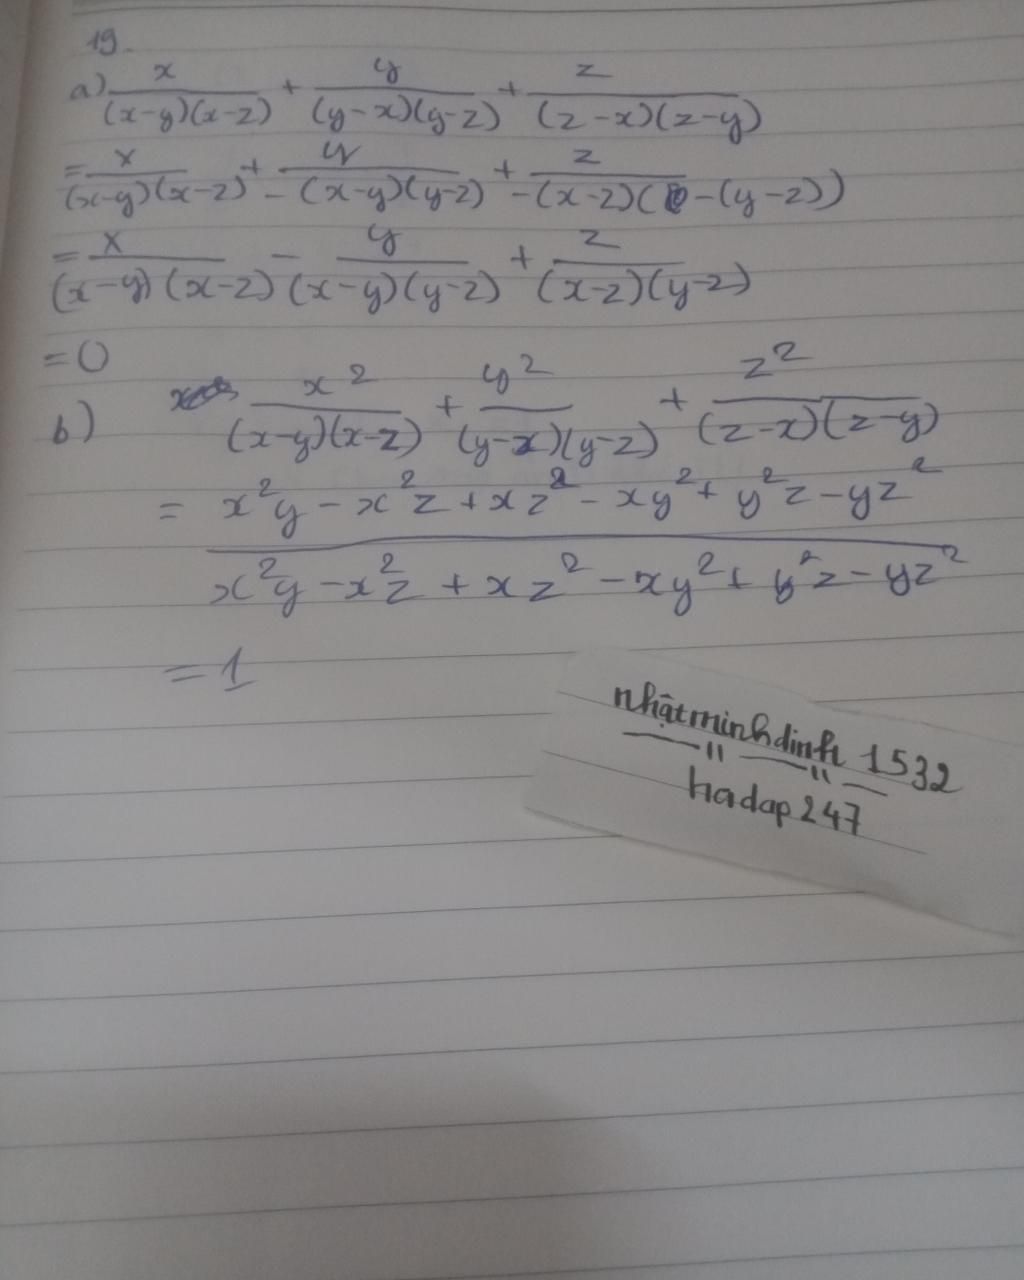 19.
a) x/((x-y)(x-z)) + y/((y-x)(y-z)) + z/((z-x)(z-y))
= x/((x-y)(x-z)) + y/(-(x-y)(y-z)) + z/(-(x-z)(-(y-z)))
= x/((x-y)(x-z)) - y/((x-y)(y-z)) + z/((x-z)(y-z))
= 0
b) x²/((x-y)(x-z)) + y²/((y-x)(y-z)) + z²/((z-x)(z-y))
= (x²y - x²z + xz² - xy² + y²z - yz²)/(x²y - x²z + xz² - xy² + y²z - yz²)
= 1
nhậtminhdinh 1532
hadap 247